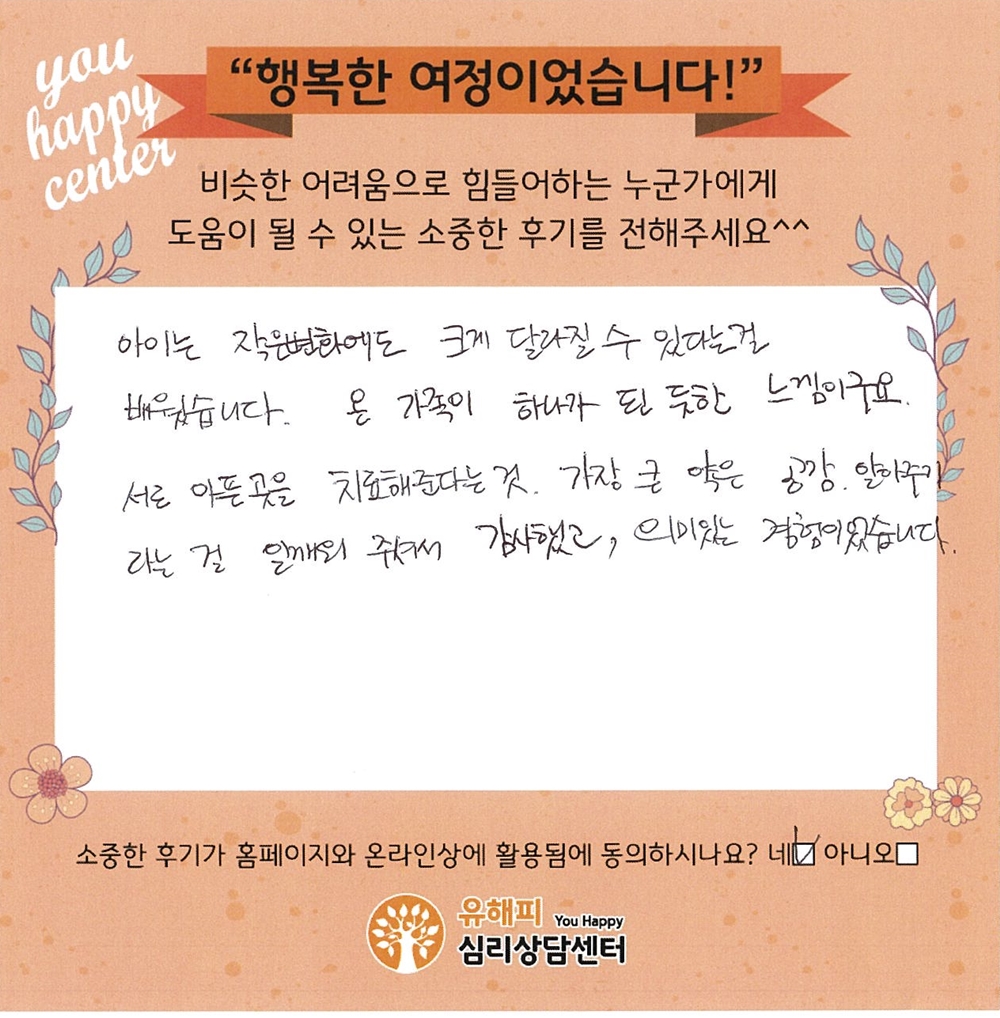 you
happy
center
“행복한 여정이었습니다!”
비슷한 어려움으로 힘들어하는 누군가에게
도움이 될 수 있는 소중한 후기를 전해주세요^^
아이는 작은변화에도 크게 달라질 수 있다는걸
배웠습니다. 온 가족이 하나가 된 듯한 느낌이구요.
서로 아픈곳을 치료해준다는 것. 가장 큰 약은 공감. 알아주기
라는 걸 일깨워 주셔서 감사했고, 의미있는 경험이었습니다.
소중한 후기가 홈페이지와 온라인상에 활용됨에 동의하시나요? 네 아니오
유해피 You Happy
심리상담센터